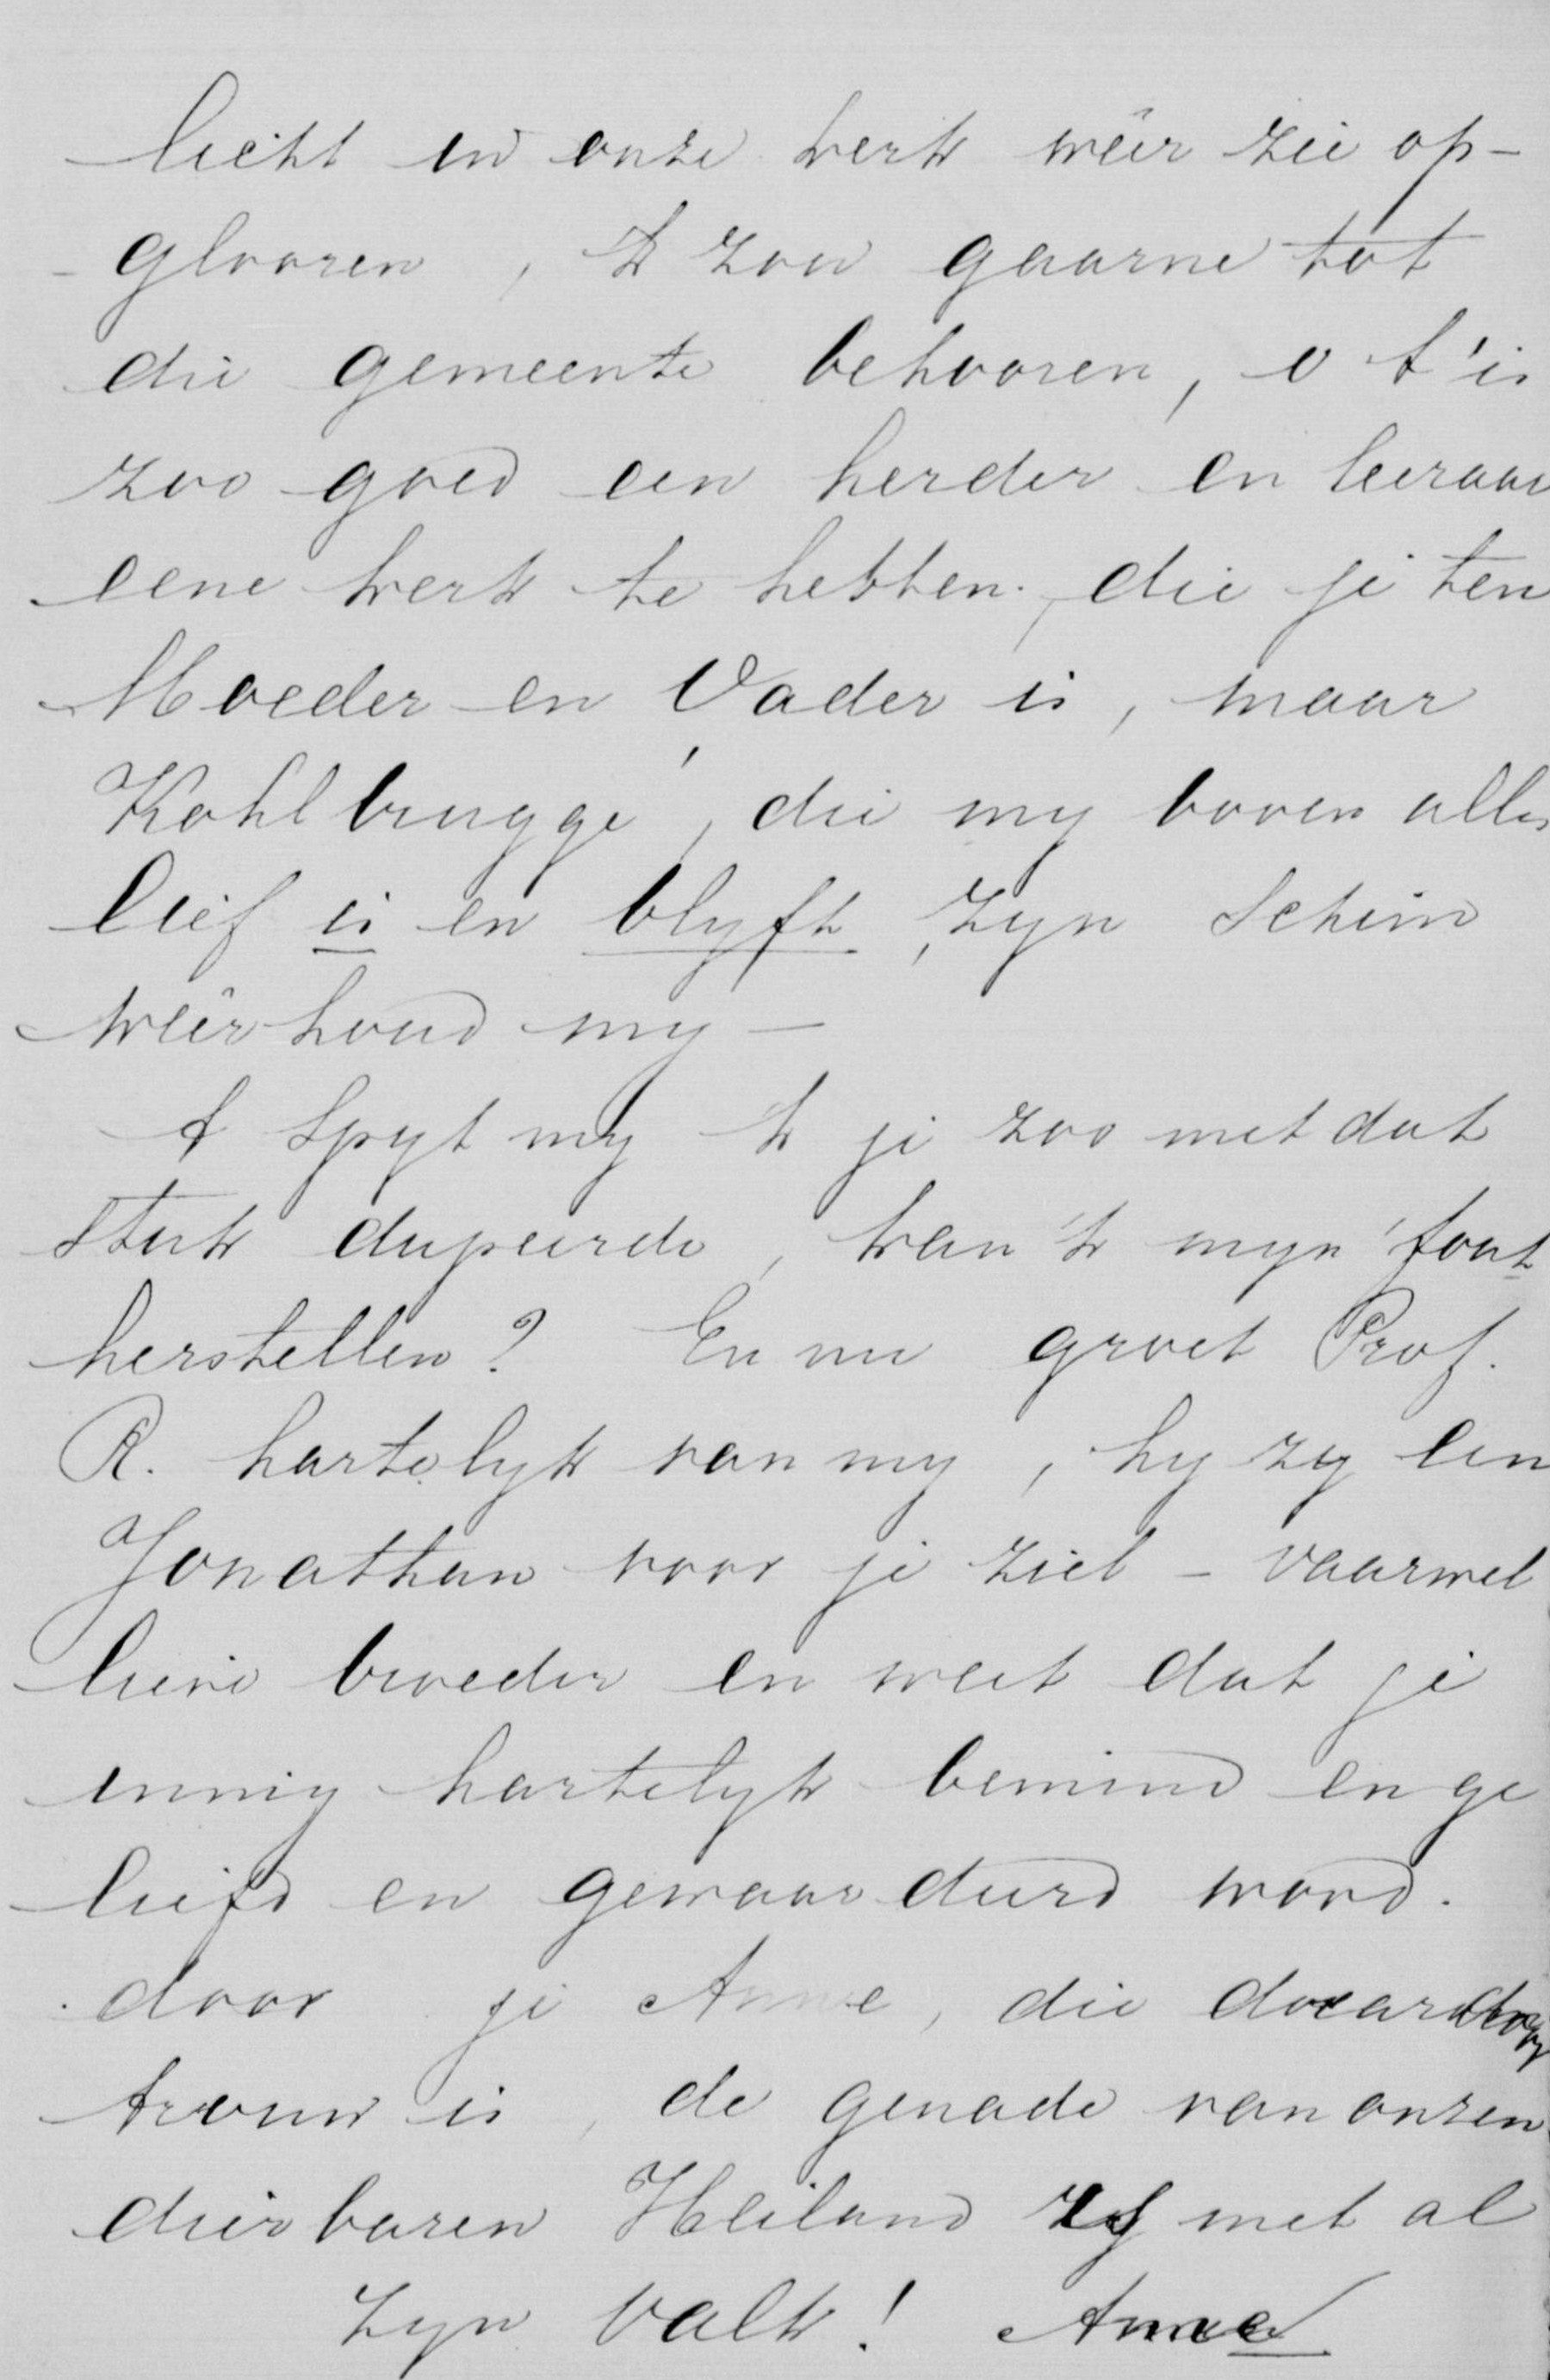 licht in onze kerk wêer zie op-
glooren, 'k zou gaarne tot
die gemeente behooren, o t'is
zoo goed een herder en leeraar
eene kerk te hebben, die je ten
Moeder en Vader is, maar
Kohlbrugge, die my boven alles
lief is en blyft, zyn Schim
wêerhoud my —
't Spyt my 'k je zoo met dat
stuk dupeerde, kan 'k myn fout
herstellen? En nu groet Prof.
R. hartelyk van my, hy zy een
Jonathan voor je ziel - vaarwel
lieve broeder en weet dat je
innig hartelyk bemind en ge
liefd en gewaardeerd word.
door je Anne, die
trouw is, de genade van onzen
dierbaren Heiland zy met al
zyn volk! Anne